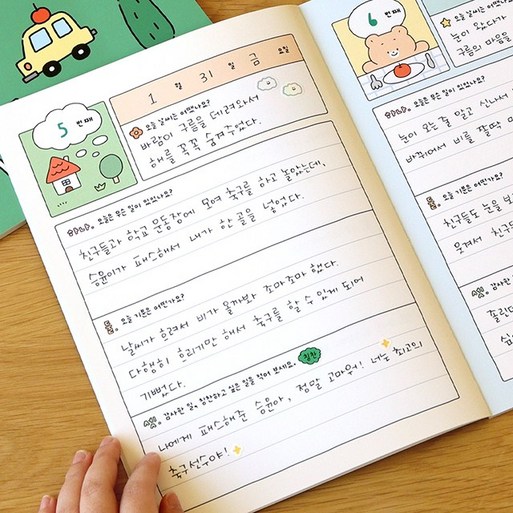 5 번째
1 월 31 일 금 요일
오늘 날씨는 어땠나요?
바람이 구름을 데려와서
해를 꼭꼭 숨겨두었다.
오늘은 무슨 일이 있었나요?
친구들과 학교 운동장에 모여 축구를 하고 놀았는데,
승윤이가 패스해서 내가 한 골을 넣었다.
오늘 기분은 어떤가요?
날씨가 흐려서 비가 올까봐 조마조마 했다.
다행히 흐리기만 해서 축구를 할 수 있게 되어
기뻤다.
감사한 일, 칭찬하고 싶은 일을 적어 보세요. 칭찬
나에게 패스해준 승윤아, 정말 고마워! 너는 최고의
축구선수야!
6 번째
오늘 날씨는 어땠나요?
눈이 왔다가
구름의 마음을
오늘은 무슨 일이 있었나요?
눈이 오는 줄 알고 신나서
바뀌어서 비를 쫄딱
오늘 기분은 어떤가요?
친구들도 눈을
웃겨서 친구
감사한